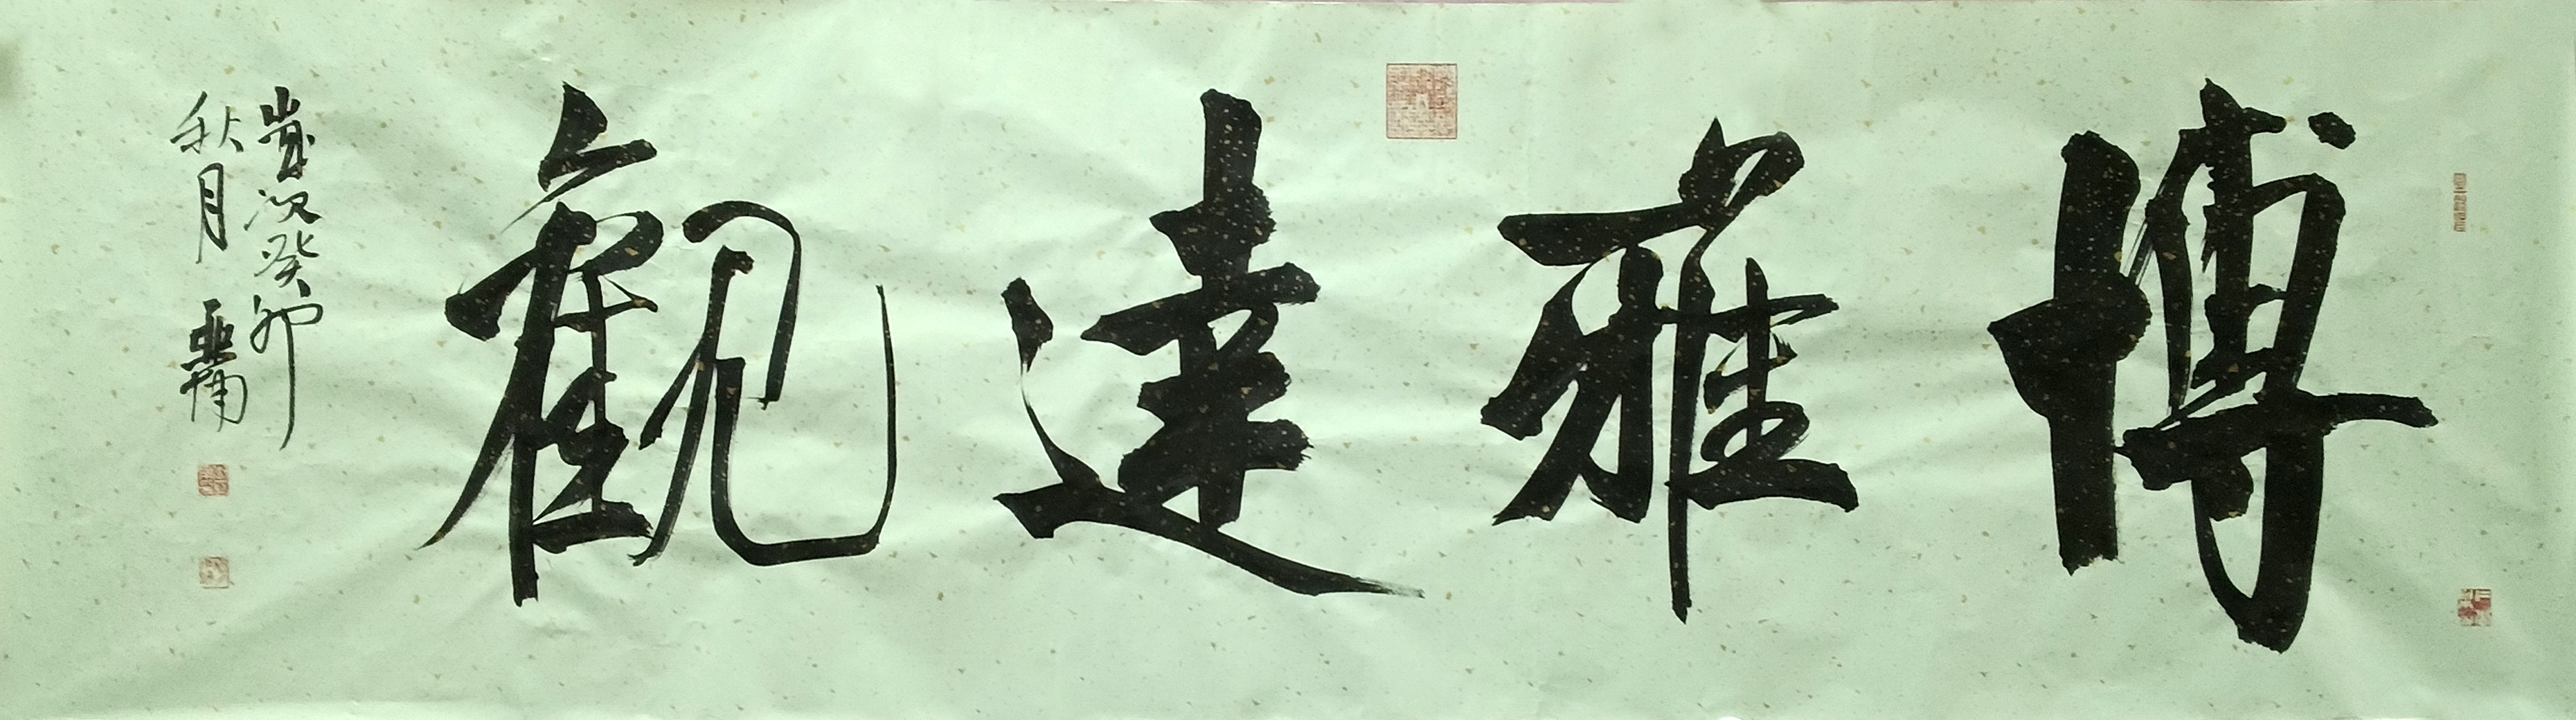 博雅達觀
歲次癸卯
秋月